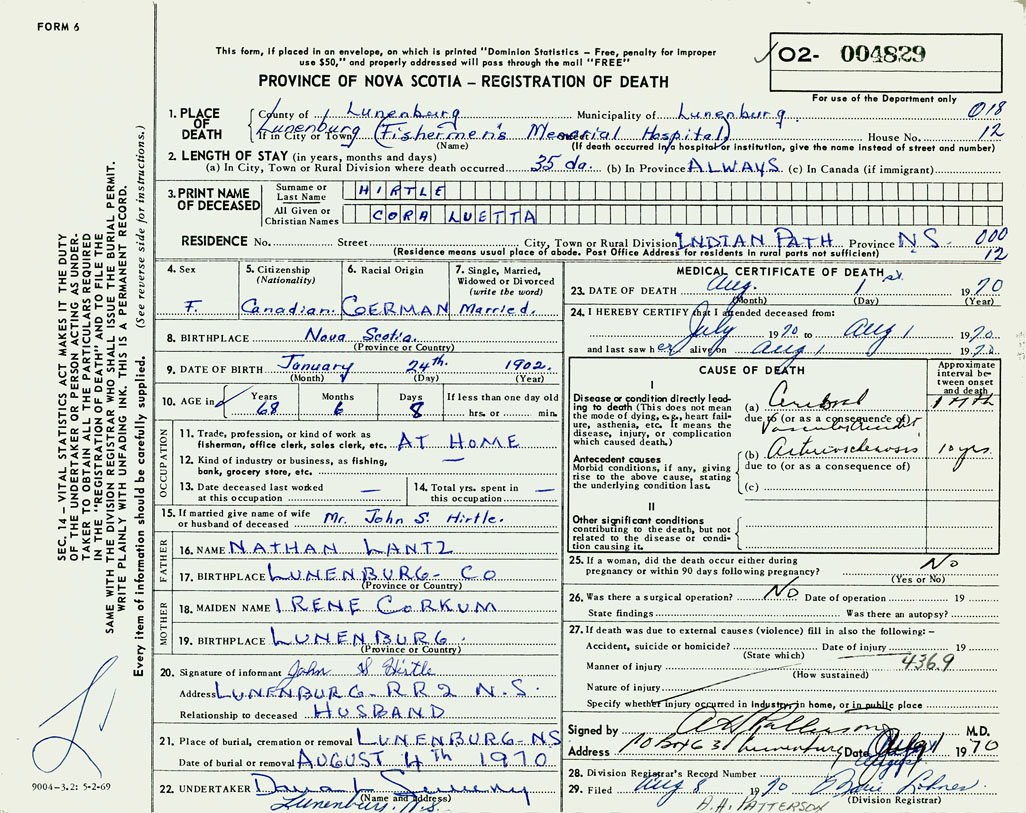 FORM 6
This form, if placed in an envelope, on which is printed "Dominion Statistics – Free, penalty for improper
use $50," and properly addressed will pass through the mail "FREE"
PROVINCE OF NOVA SCOTIA – REGISTRATION OF DEATH
02- 004829
For use of the Department only
018
12
1. PLACE OF DEATH
County of Lunenburg Municipality of Lunenburg
If in City or Town Lunenburg (Fishermen's Memorial Hospital) House No.
(Name) (If death occurred in a hospital or institution, give the name instead of street and number)
2. LENGTH OF STAY (in years, months and days)
(a) In City, Town or Rural Division where death occurred 35 da. (b) In Province ALWAYS (c) In Canada (if immigrant)
3. PRINT NAME OF DECEASED
Surname or Last Name HIRTLE
All Given or Christian Names CORA LUETTA
RESIDENCE No. Street City, Town or Rural Division INDIAN PATH Province N.S. 000
(Residence means usual place of abode. Post Office Address for residents in rural parts not sufficient) 12
4. Sex F.
5. Citizenship (Nationality) Canadian.
6. Racial Origin GERMAN
7. Single, Married, Widowed or Divorced (write the word) Married.
8. BIRTHPLACE Nova Scotia.
(Province or Country)
9. DATE OF BIRTH January 24th. 1902.
(Month) (Day) (Year)
10. AGE in Years 68 Months 6 Days 8 If less than one day old
hrs. or min.
OCCUPATION
11. Trade, profession, or kind of work as
fisherman, office clerk, sales clerk, etc. AT HOME
12. Kind of industry or business, as fishing,
bank, grocery store, etc. —
13. Date deceased last worked
at this occupation —
14. Total yrs. spent in
this occupation —
15. If married give name of wife
or husband of deceased Mr. John S. Hirtle.
FATHER
16. NAME NATHAN LANTZ
17. BIRTHPLACE LUNENBURG- CO
(Province or Country)
MOTHER
18. MAIDEN NAME IRENE CORKUM
19. BIRTHPLACE LUNENBURG.
(Province or Country)
20. Signature of informant John S Hirtle
Address LUNENBURG- RR2 N.S.
Relationship to deceased HUSBAND
21. Place of burial, cremation or removal LUNENBURG-NS
Date of burial or removal AUGUST 4th 1970
22. UNDERTAKER
(Name and address)
Lunenburg, N.S.
MEDICAL CERTIFICATE OF DEATH
23. DATE OF DEATH Aug. 1 st. 1970
(Month) (Day) (Year)
24. I HEREBY CERTIFY that I attended deceased from:
July 1970 to Aug 1 1970.
and last saw her alive on Aug 1 1970.
CAUSE OF DEATH
Approximate interval between onset and death
I
Disease or condition directly leading to death (This does not
mean the mode of dying, e.g., heart failure, asthenia, etc. It means the
disease, injury, or complication
which caused death.)
(a) Cerebral
due to (or as a consequence of)
Antecedent causes
Morbid conditions, if any, giving
rise to the above cause, stating
the underlying condition last.
(b) Arteriosclerosis 10 yrs.
due to (or as a consequence of)
(c)
II
Other significant conditions
contributing to the death, but not
related to the disease or condition causing it.
25. If a woman, did the death occur either during
pregnancy or within 90 days following pregnancy? No
(Yes or No)
26. Was there a surgical operation? NO Date of operation 19
State findings Was there an autopsy?
27. If death was due to external causes (violence) fill in also the following: –
Accident, suicide or homicide? Date of injury 19
(State which) 436.9
Manner of injury (How sustained)
Nature of injury
Specify whether injury occurred in industry, in home, or in public place
Signed by M.D.
Address PO Box 631 Lunenburg Date 1970
August
28. Division Registrar's Record Number
29. Filed Aug 8 1970
(Division Registrar)
A.H. PATTERSON
SEC. 14 – VITAL STATISTICS ACT MAKES IT THE DUTY
OF THE UNDERTAKER OR PERSON ACTING AS UNDERTAKER TO OBTAIN ALL THE PARTICULARS REQUIRED
IN THE "REGISTRATION OF DEATH" AND TO FILE THE
SAME WITH THE DIVISION REGISTRAR WHO SHALL ISSUE THE BURIAL PERMIT.
WRITE PLAINLY WITH UNFADING INK. THIS IS A PERMANENT RECORD.
Every item of information should be carefully supplied. (See reverse side for instructions.)
9004-3.2: 5-2-69